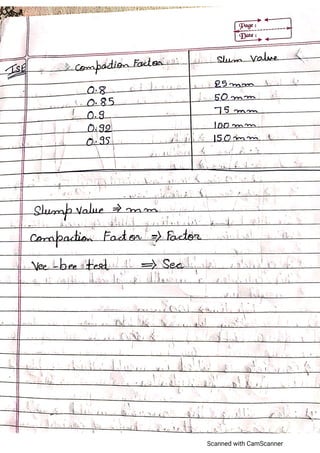 Page :
Date :
ISE Compaction Factor Slum Value
0.8 25mm
0.85 50 mm
0.9 75 mm
0.92 100 mm
0.95 150 mm
Slump Value ⇒ mm
Compaction Factor ⇒ Factor
Vee-bee test ⇒ Sec
Scanned with CamScanner